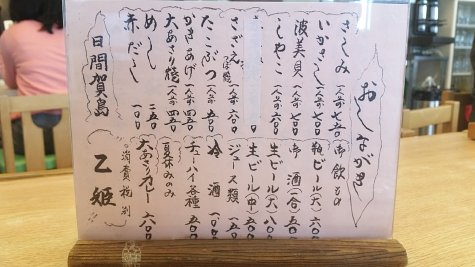 おしながき
さしみ 一人前 七五〇
いかさし 一人前 七〇〇
波美貝 一人前 七五〇
しゃこ 一人前 六〇〇
さざえ つぼ焼 一人前 六〇〇
たこぶつ 一人前 五〇〇
かきあげ 一人前 四五〇
大あさり焼 一人前 四五〇
めし 二五〇
赤だし 一〇〇
御飲もの
瓶ビール(大) 六〇〇
御酒(一合) 五〇〇
生ビール(大) 八〇〇
生ビール(中) 五〇〇
ジュース類 二五〇
冷酒 一〇〇〇
チューハイ各種 五〇〇
夏休みのみ
大あさりカレー 六〇〇
消費税別
日間賀島 乙姫